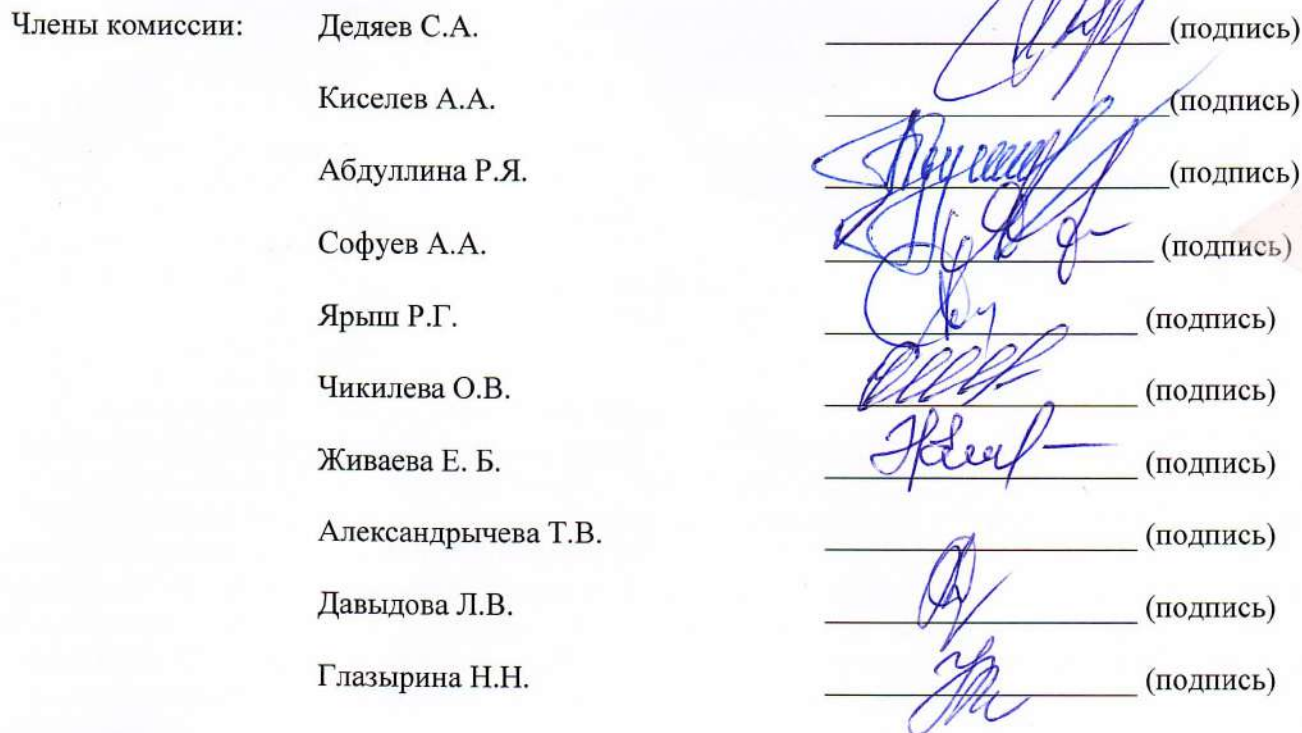 Члены комиссии: Дедяев С.А. (подпись)
Киселев А.А. (подпись)
Абдуллина Р.Я. (подпись)
Софуев А.А. (подпись)
Ярыш Р.Г. (подпись)
Чикилева О.В. (подпись)
Живаева Е. Б. (подпись)
Александрычева Т.В. (подпись)
Давыдова Л.В. (подпись)
Глазырина Н.Н. (подпись)